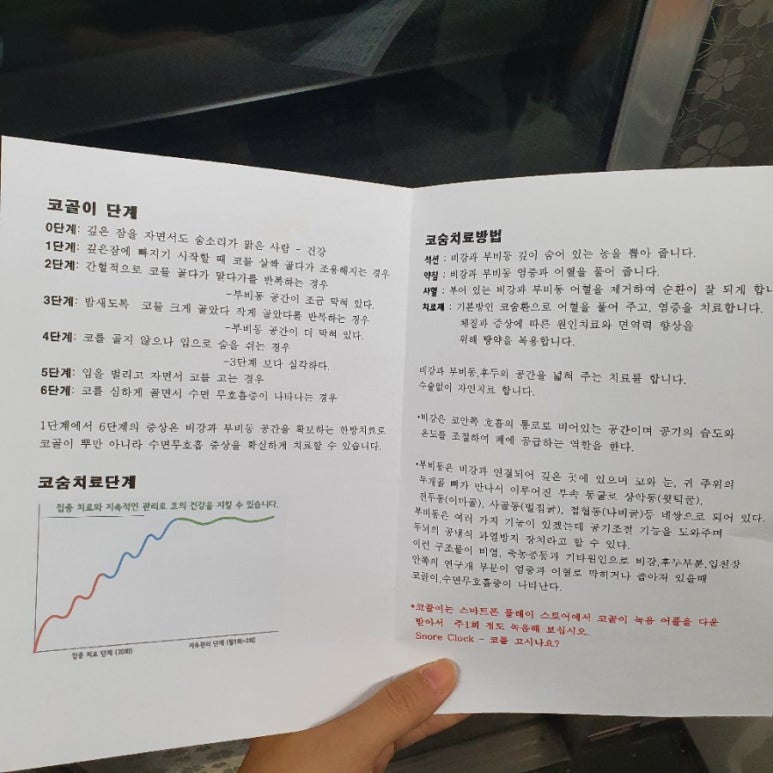 코골이 단계
0단계: 깊은 잠을 자면서도 숨소리가 맑은 사람 - 건강
1단계: 깊은잠에 빠지기 시작할 때 코를 살짝 골다가 조용해지는 경우
2단계: 간헐적으로 코를 골다가 말다가를 반복하는 경우
-부비동 공간이 조금 막혀 있다.
3단계: 밤새도록 코를 크게 골았다 작게 골았다를 반복하는 경우
-부비동 공간이 더 막혀 있다.
4단계: 코를 골지 않으나 입으로 숨을 쉬는 경우
-3단계 보다 심각하다.
5단계: 입을 벌리고 자면서 코를 고는 경우
6단계: 코를 심하게 골면서 수면 무호흡증이 나타나는 경우
1단계에서 6단계의 증상은 비강과 부비동 공간을 확보하는 한방치료로
코골이 뿐만 아니라 수면무호흡 증상을 확실하게 치료할 수 있습니다.
코숨치료단계
집중 치료와 지속적인 관리로 코의 건강을 지킬 수 있습니다.
집중 치료 단계 (20회)
지속관리 단계 (월1회~2회)
코숨치료방법
석션 : 비강과 부비동 깊이 숨어 있는 농을 뽑아 줍니다.
약침 : 비강과 부비동 염증과 어혈을 풀어 줍니다.
사혈 : 부어 있는 비강과 부비동 어혈을 제거하여 순환이 잘 되게 합니
치료제 : 기본방인 코숨환으로 어혈을 풀어 주고, 염증을 치료합니다.
체질과 증상에 따른 원인치료와 면역력 향상을
위해 탕약을 복용합니다.
비강과 부비동,후두의 공간을 넓혀 주는 치료를 합니다.
수술없이 자연치료 합니다.
*비강은 코안쪽 호흡의 통로로 비어있는 공간이며 공기의 습도와
온도를 조절하여 폐에 공급하는 역할을 한다.
*부비동은 비강과 연결되어 깊은 곳에 있으며 코와 눈, 귀 주위의
두개골 뼈가 만나서 이루어진 부속 동굴로 상악동(윗턱굴),
전두동(이마굴), 사골동(벌집굴), 접형동(나비굴)등 네쌍으로 되어 있다.
부비동은 여러 가지 기능이 있겠는데 공기조절 기능을 도와주며
두뇌의 공냉식 과열방지 장치라고 할 수 있다.
이런 구조물이 비염, 축농증등과 기타원인으로 비강,후두부분,입천장
안쪽의 연구개 부분이 염증과 어혈로 막히거나 좁아져 있을때
코골이,수면무호흡증이 나타난다.
*코골이는 스마트폰 플레이 스토어에서 코골이 녹음 어플을 다운
받아서 주1회 정도 녹음해 보십시오.
Snore Clock - 코를 고시나요?